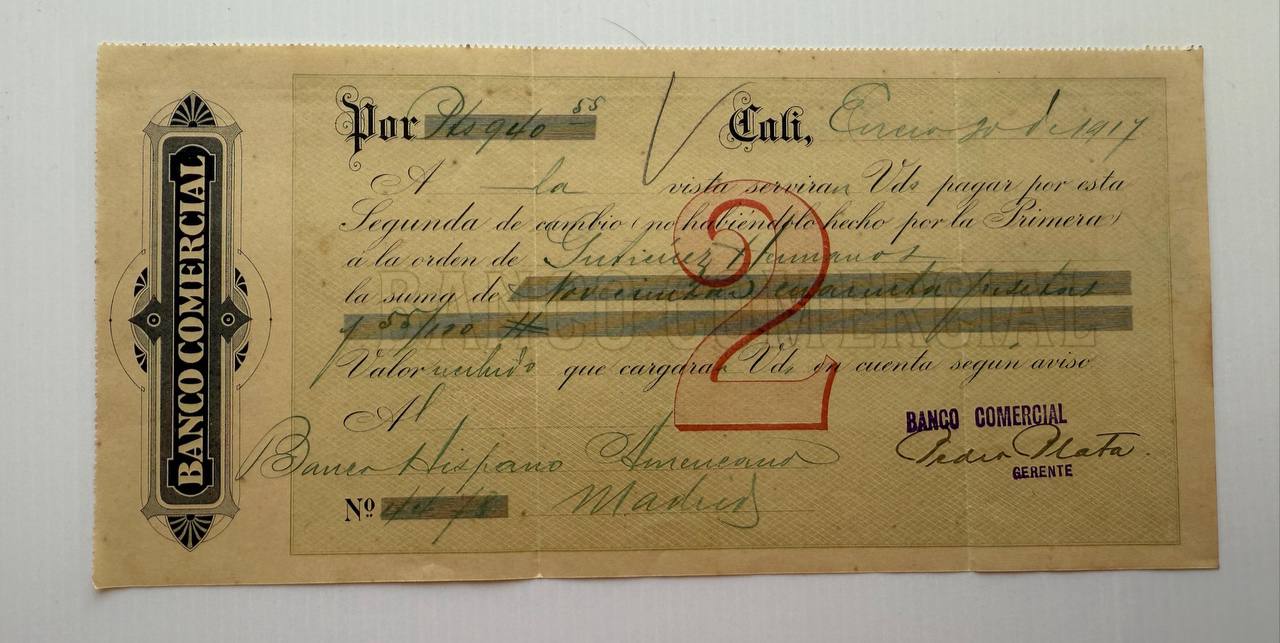 BANCO COMERCIAL
Por Pts 940 55 Cali, Enero 20 de 1917
A la vista serviran Vds pagar por esta
Segunda de cambio (no habiéndolo hecho por la Primera)
á la orden de Gutierrez Hermanos
la suma de Novecientas cuarenta pesetas
y 55/100 #
Valor recibido que cargaran Vds en cuenta segun aviso
2
BANCO COMERCIAL
Al
Banco Hispano Americano
Madrid
BANCO COMERCIAL
Pedro Plata
GERENTE
Nº 4478